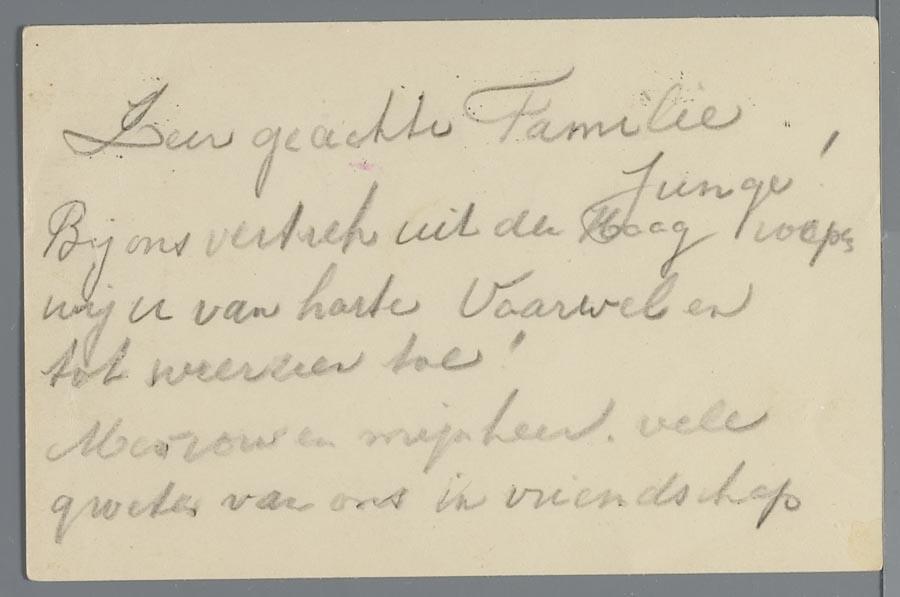 Zeer geachte Familie
Junge!
Bij ons vertrek uit den Haag roepen
wij u van harte Vaarwel en
tot weerzien toe!
Mevrouw en mijnheer. vele
groeten van ons in vriendschap